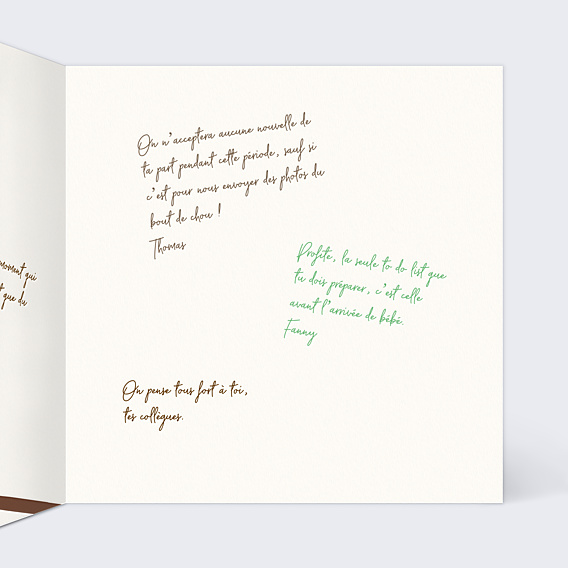 moment qui
t que du
On n'acceptera aucune nouvelle de
ta part pendant cette période, sauf si
c'est pour nous envoyer des photos du
bout de chou !
Thomas
Profite, la seule to do list que
tu dois préparer, c'est celle
avant l'arrivée de bébé.
Fanny
On pense tous fort à toi,
tes collègues.